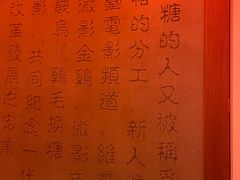 糖的人又被稱
糖的分工 新人
電影頻道。維
微影金鷄 微影
義烏 鷄毛換糖
影 共同紀念一
改革發展之